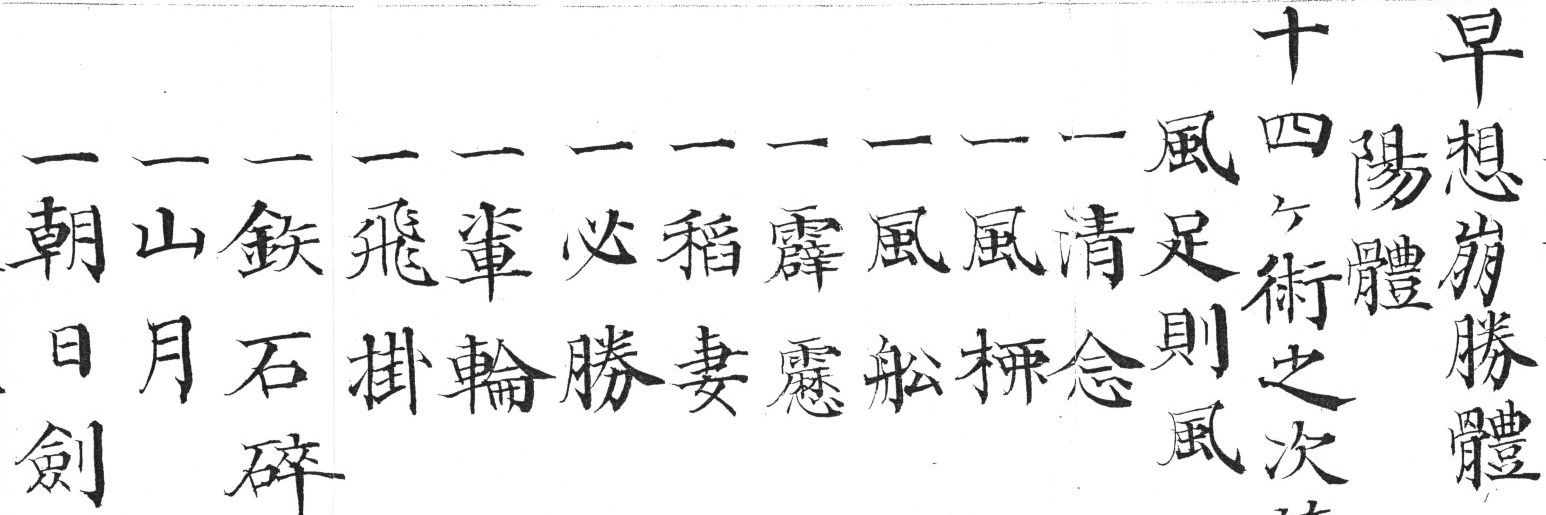 早想崩勝體
陽體
十四ヶ術之次
風足則風
一清念
一風栁
一風舩
一霹靂
一稻妻
一必勝
一輩輪
一飛掛
一鉃石碎
一山月
一朝日劍